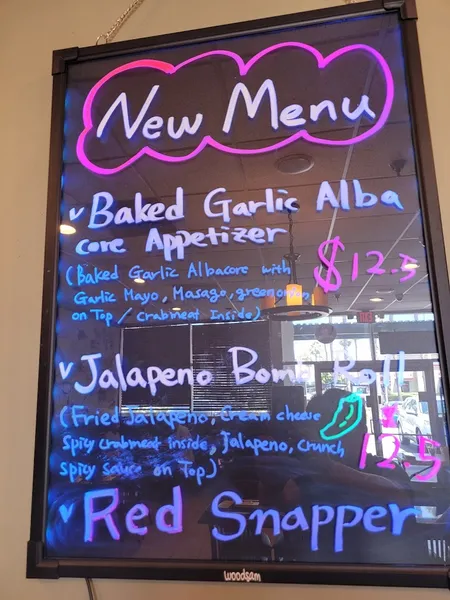 New Menu
✓ Baked Garlic Alba
core Appetizer
(Baked Garlic Albacore with
Garlic Mayo, Masago, green onion
on Top / crabmeat Inside)
$12.5
✓ Jalapeno Bomb Roll
(Fried Jalapeno, Cream cheese
Spicy crabmeat inside, Jalapeno, Crunch,
Spicy sauce on Top)
$
12.5
✓ Red Snapper
woodsam